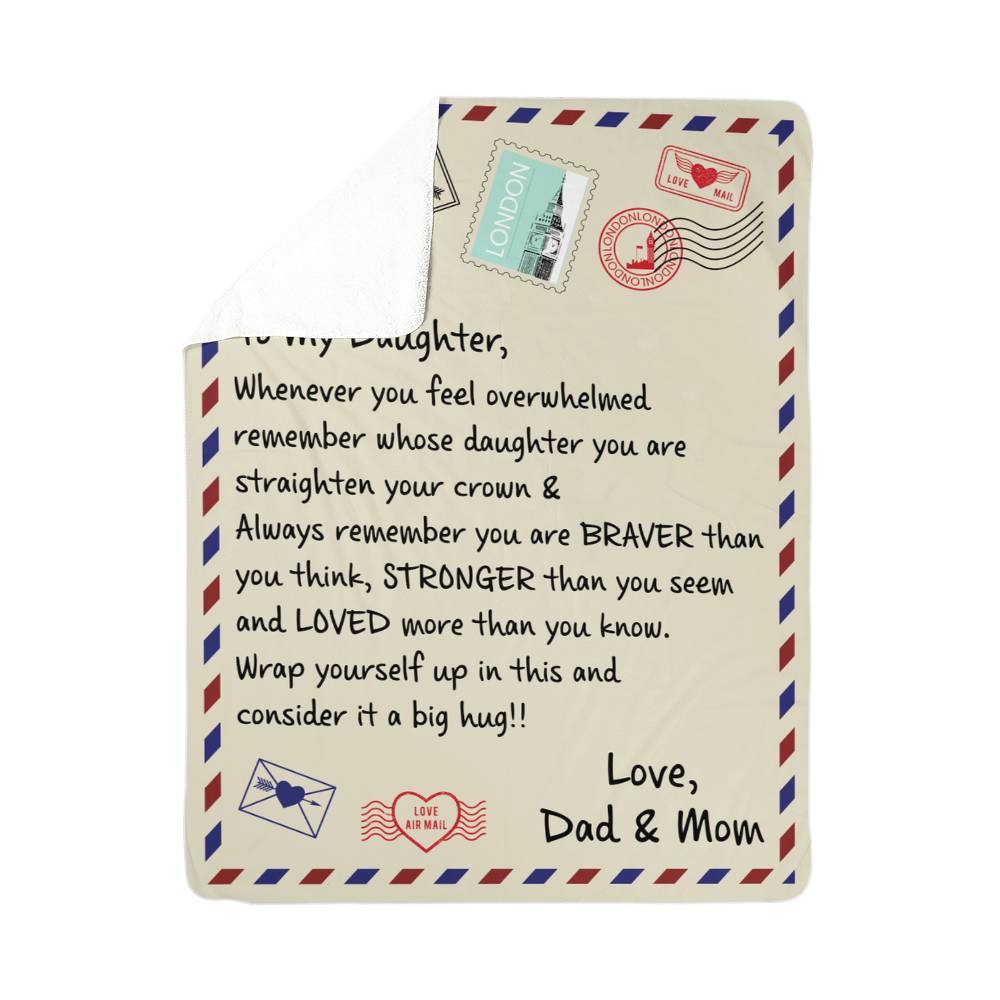 LONDON
LOVE MAIL
LONDONLONDONLONDONLONDON
To My Daughter,
Whenever you feel overwhelmed
remember whose daughter you are
straighten your crown &
Always remember you are BRAVER than
you think, STRONGER than you seem
and LOVED more than you know.
Wrap yourself up in this and
consider it a big hug!!
Love,
Dad & Mom
LOVE
AIR MAIL